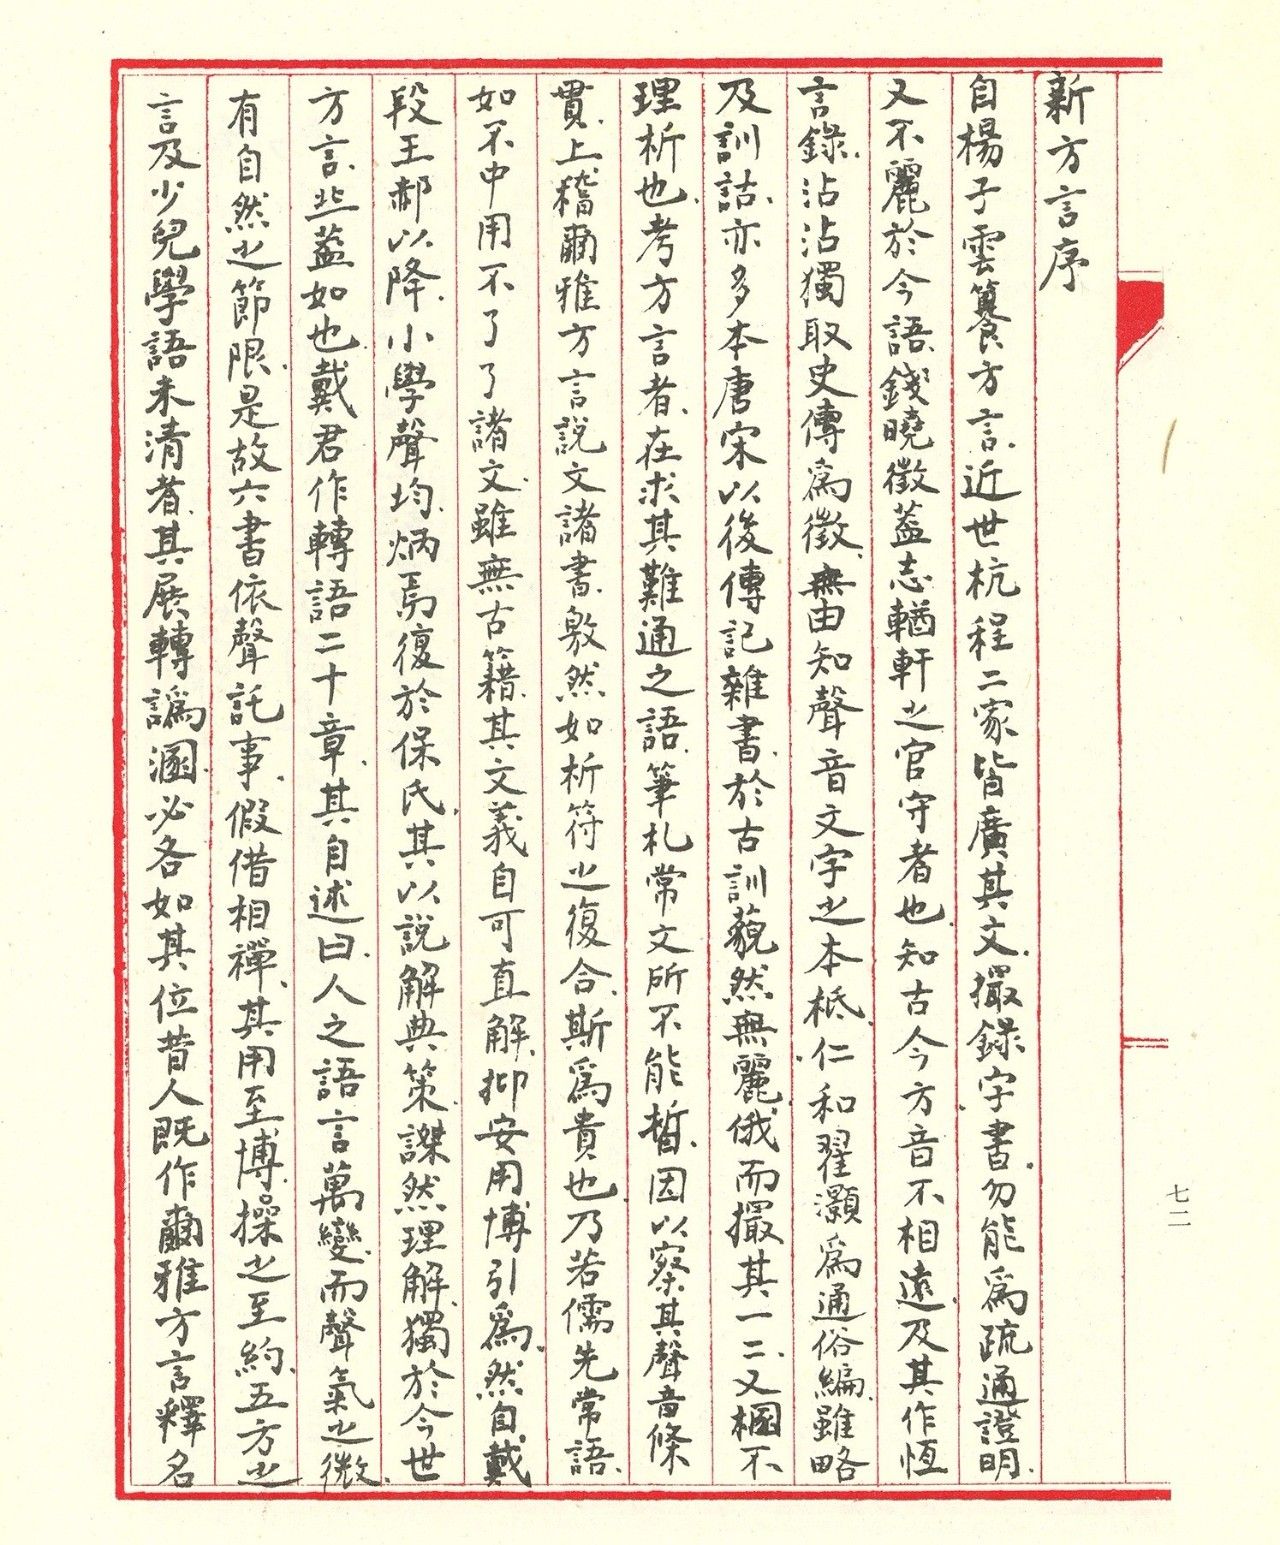 新方言序
自楊子雲籑方言、近世杭程二家皆廣其文、撮錄字書、勿能為疏通證明、
又不麗於今語、錢曉徵蓋志輶軒之官守者也、知古今方音不相遠、及其作恆
言錄、沾沾獨取史傳為徵、無由知聲音文字之本柢、仁和翟灝為通俗編、雖略
及訓詁、亦多本唐宋以後傳記雜書、於古訓藐然無麗、俄而撮其一二、又楖不
理析也、考方言者、在求其難通之語、筆札常文所不能晢、因以察其聲音條
貫、上稽爾雅方言說文諸書、敫然如析符之復合、斯為貴也、乃若儒先常語、
如不中用不了了諸文、雖無古籍、其文義自可直解、抑安用博引為、然自戴
段王郝以降、小學聲均、炳焉復於保氏、其以說解典策、謋然理解、獨於今世
方言、丠蓋如也、戴君作轉語二十章、其自述曰、人之語言萬變、而聲氣之微、
有自然之節限、是故六書依聲託事、假借相禪、其用至博、操之至約、五方之
言及少兒學語未清者、其展轉譌溷、必各如其位、昔人既作爾雅方言釋名
七二